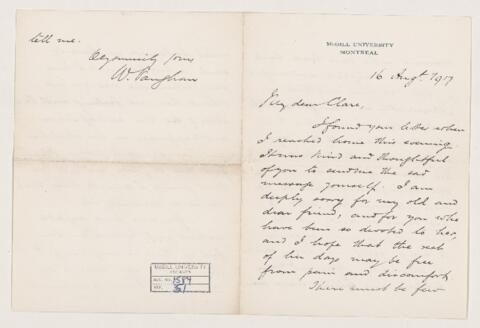 tell me.
yours
W. Vaughan
McGILL UNIVERSITY
ARCHIVES
ACC. NO. 1584
REF.
McGILL UNIVERSITY
MONTREAL
16 Augt. 1917
My dear Clare,
I found your letter when
I reached home this evening.
It was kind and thoughtful
of you to send me the sad
message yourself. I am
deeply sorry for my old and
dear friend, and for you who
have been so devoted to her,
and I hope that the rest
of her days may be free
from pain and discomfort.
There must be few